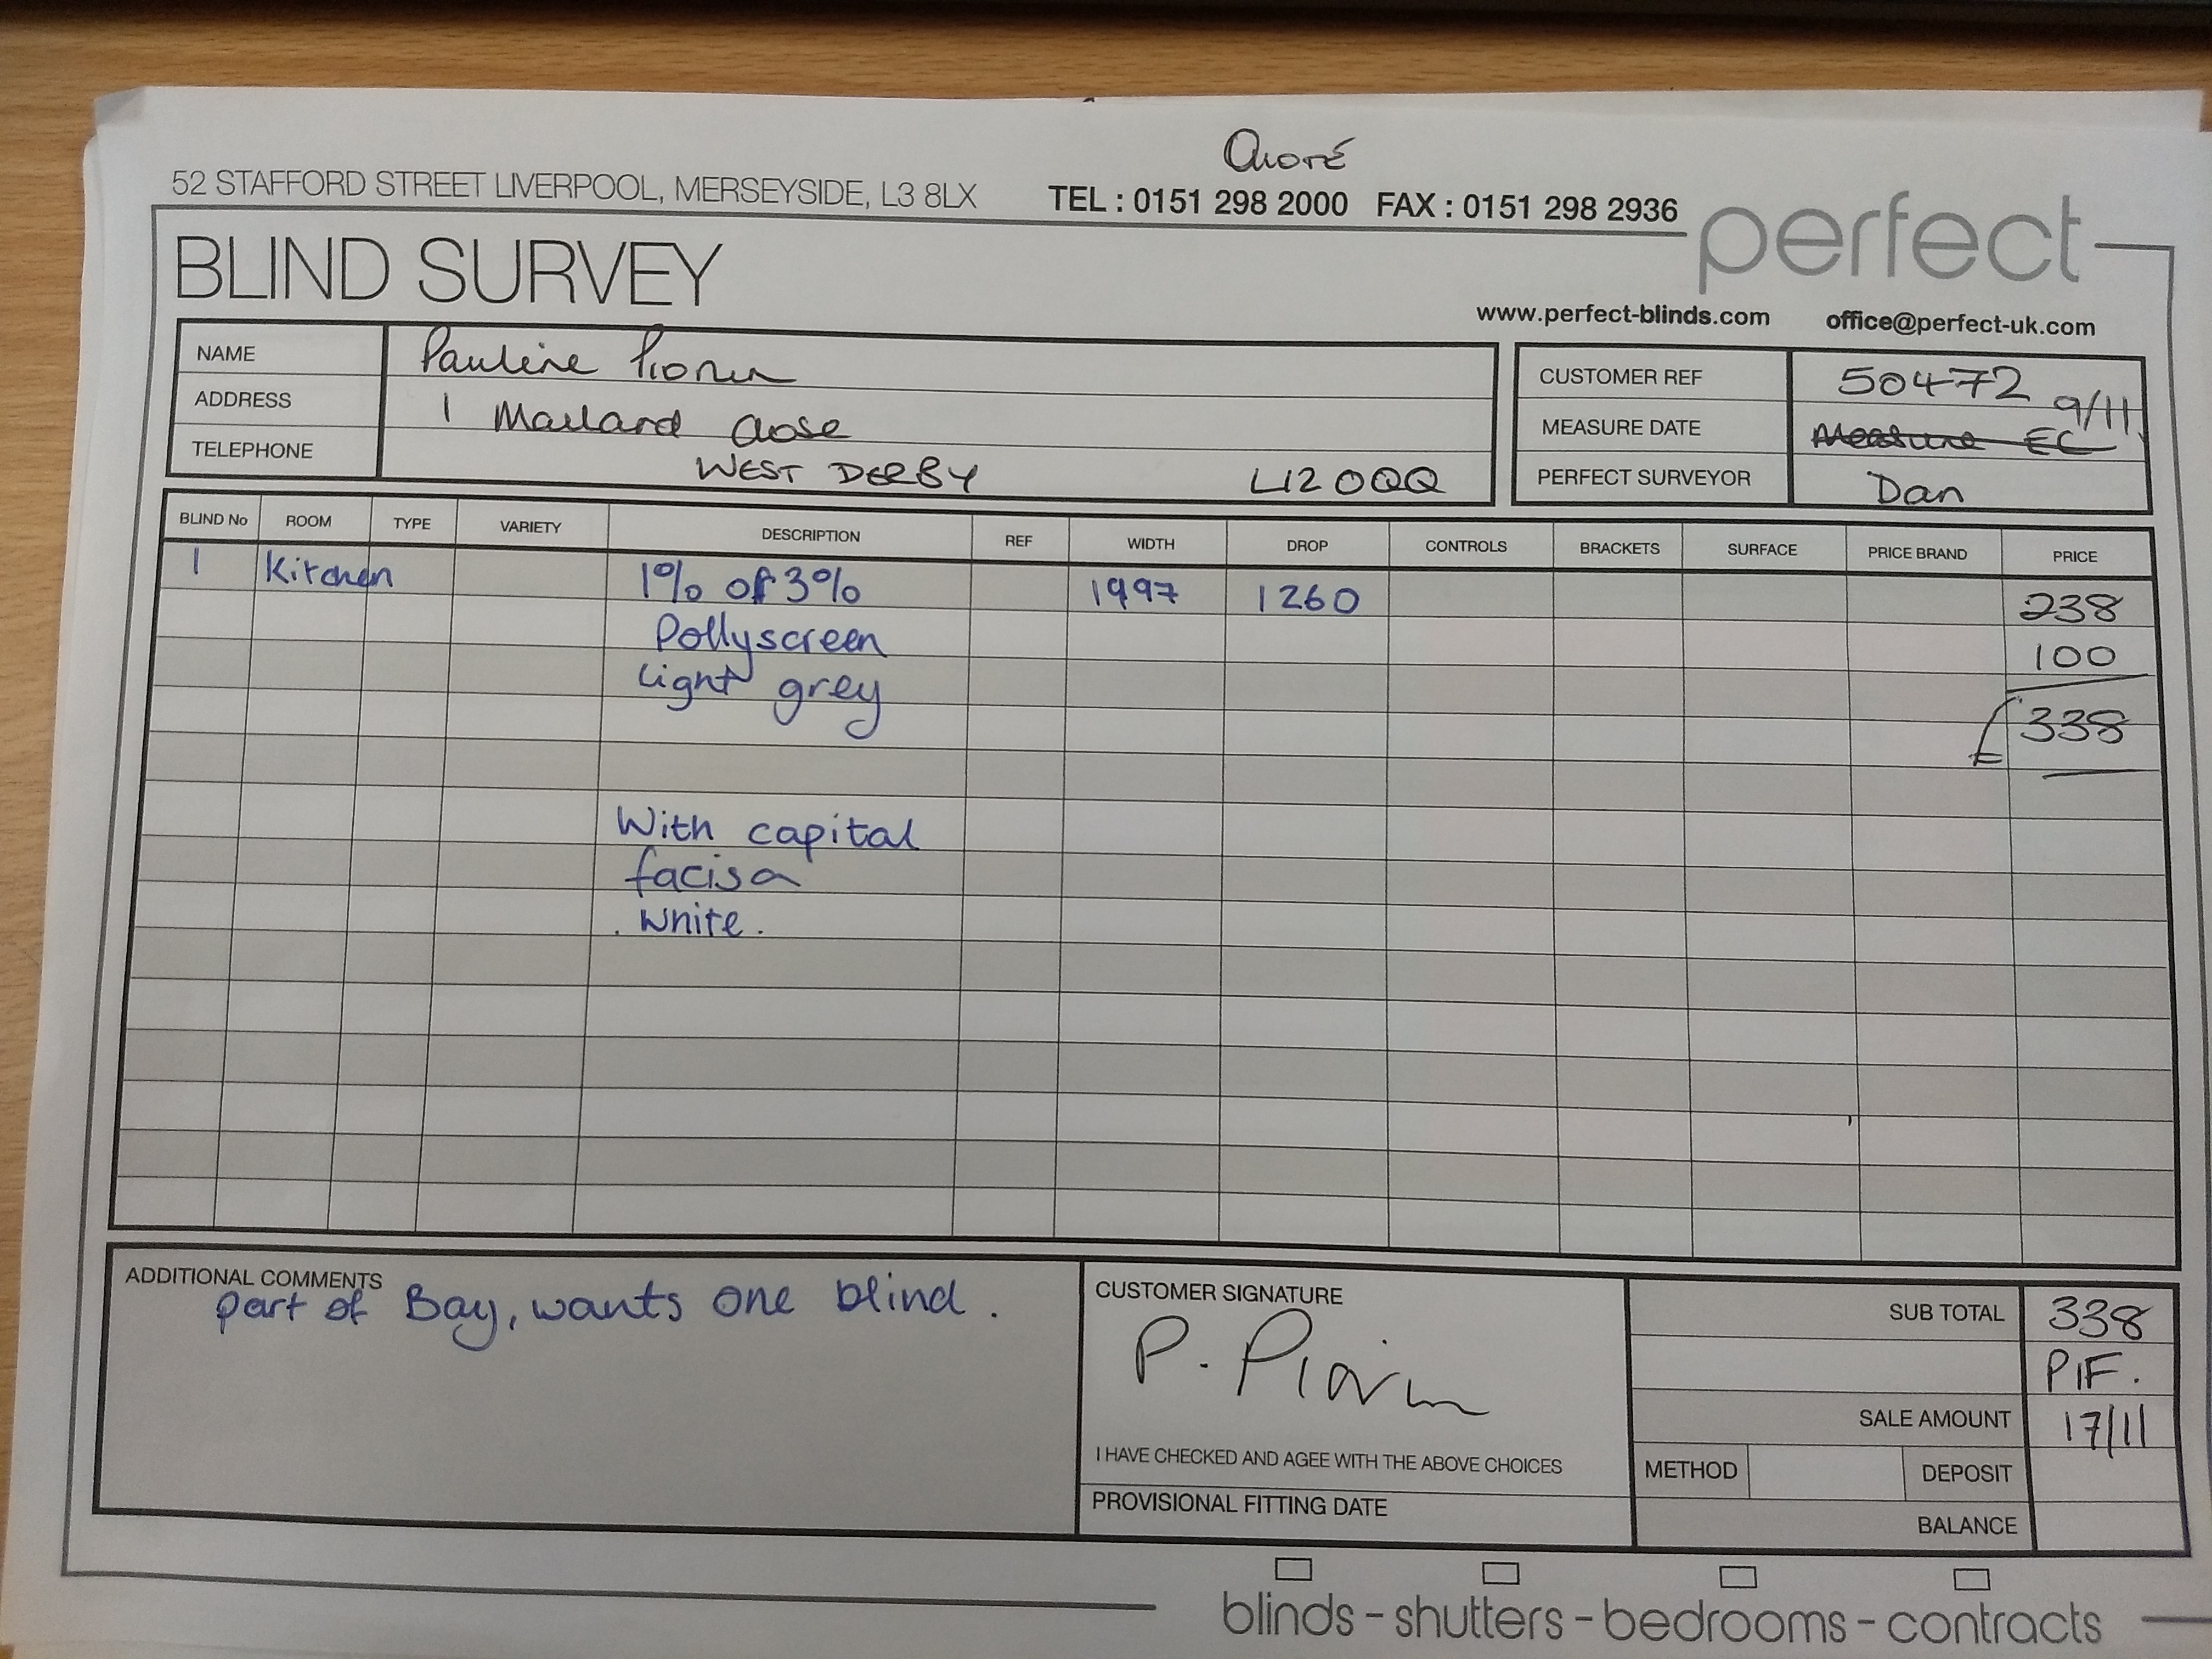 Quote
52 STAFFORD STREET LIVERPOOL, MERSEYSIDE, L3 8LX TEL : 0151 298 2000 FAX : 0151 298 2936
perfect
BLIND SURVEY
www.perfect-blinds.com office@perfect-uk.com
NAME Pauline
ADDRESS 1 Mallard Close
TELEPHONE WEST DERBY L12 0QQ
CUSTOMER REF 50472
MEASURE DATE Measure EC 9/11
PERFECT SURVEYOR Dan
BLIND No ROOM TYPE VARIETY DESCRIPTION REF WIDTH DROP CONTROLS BRACKETS SURFACE PRICE BRAND PRICE
1 Kitchen 1% of 3% 1997 1260 238
Pollyscreen 100
light grey
£338
With capital
facisa
. white .
ADDITIONAL COMMENTS
part of Bay, wants one blind .
CUSTOMER SIGNATURE
P.
I HAVE CHECKED AND AGEE WITH THE ABOVE CHOICES
PROVISIONAL FITTING DATE
SUB TOTAL 338
PIF.
SALE AMOUNT 17/11
METHOD DEPOSIT
BALANCE
blinds - shutters - bedrooms - contracts